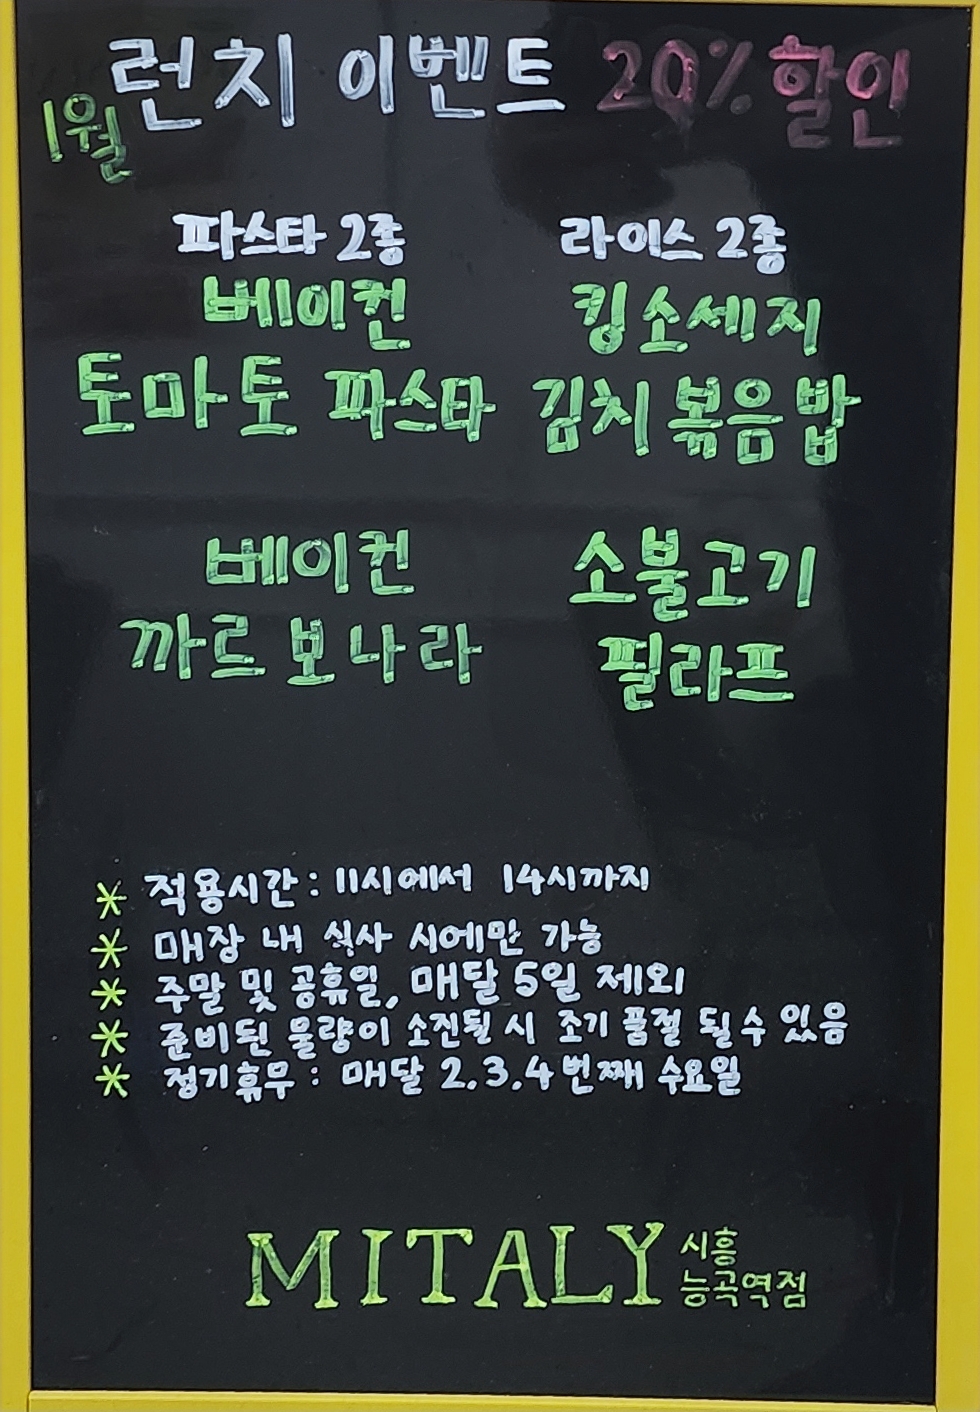 런치 이벤트 20% 할인
1월
파스타 2종
베이컨
토마토 파스타
베이컨
까르보나라
라이스 2종
킹소세지
김치볶음밥
소불고기
필라프
* 적용시간 : 11시에서 14시까지
* 매장 내 식사 시에만 가능
* 주말 및 공휴일, 매달 5일 제외
* 준비된 물량이 소진될 시 조기 품절 될 수 있음
* 정기휴무 : 매달 2.3.4번째 수요일
MITALY 시흥
능곡역점